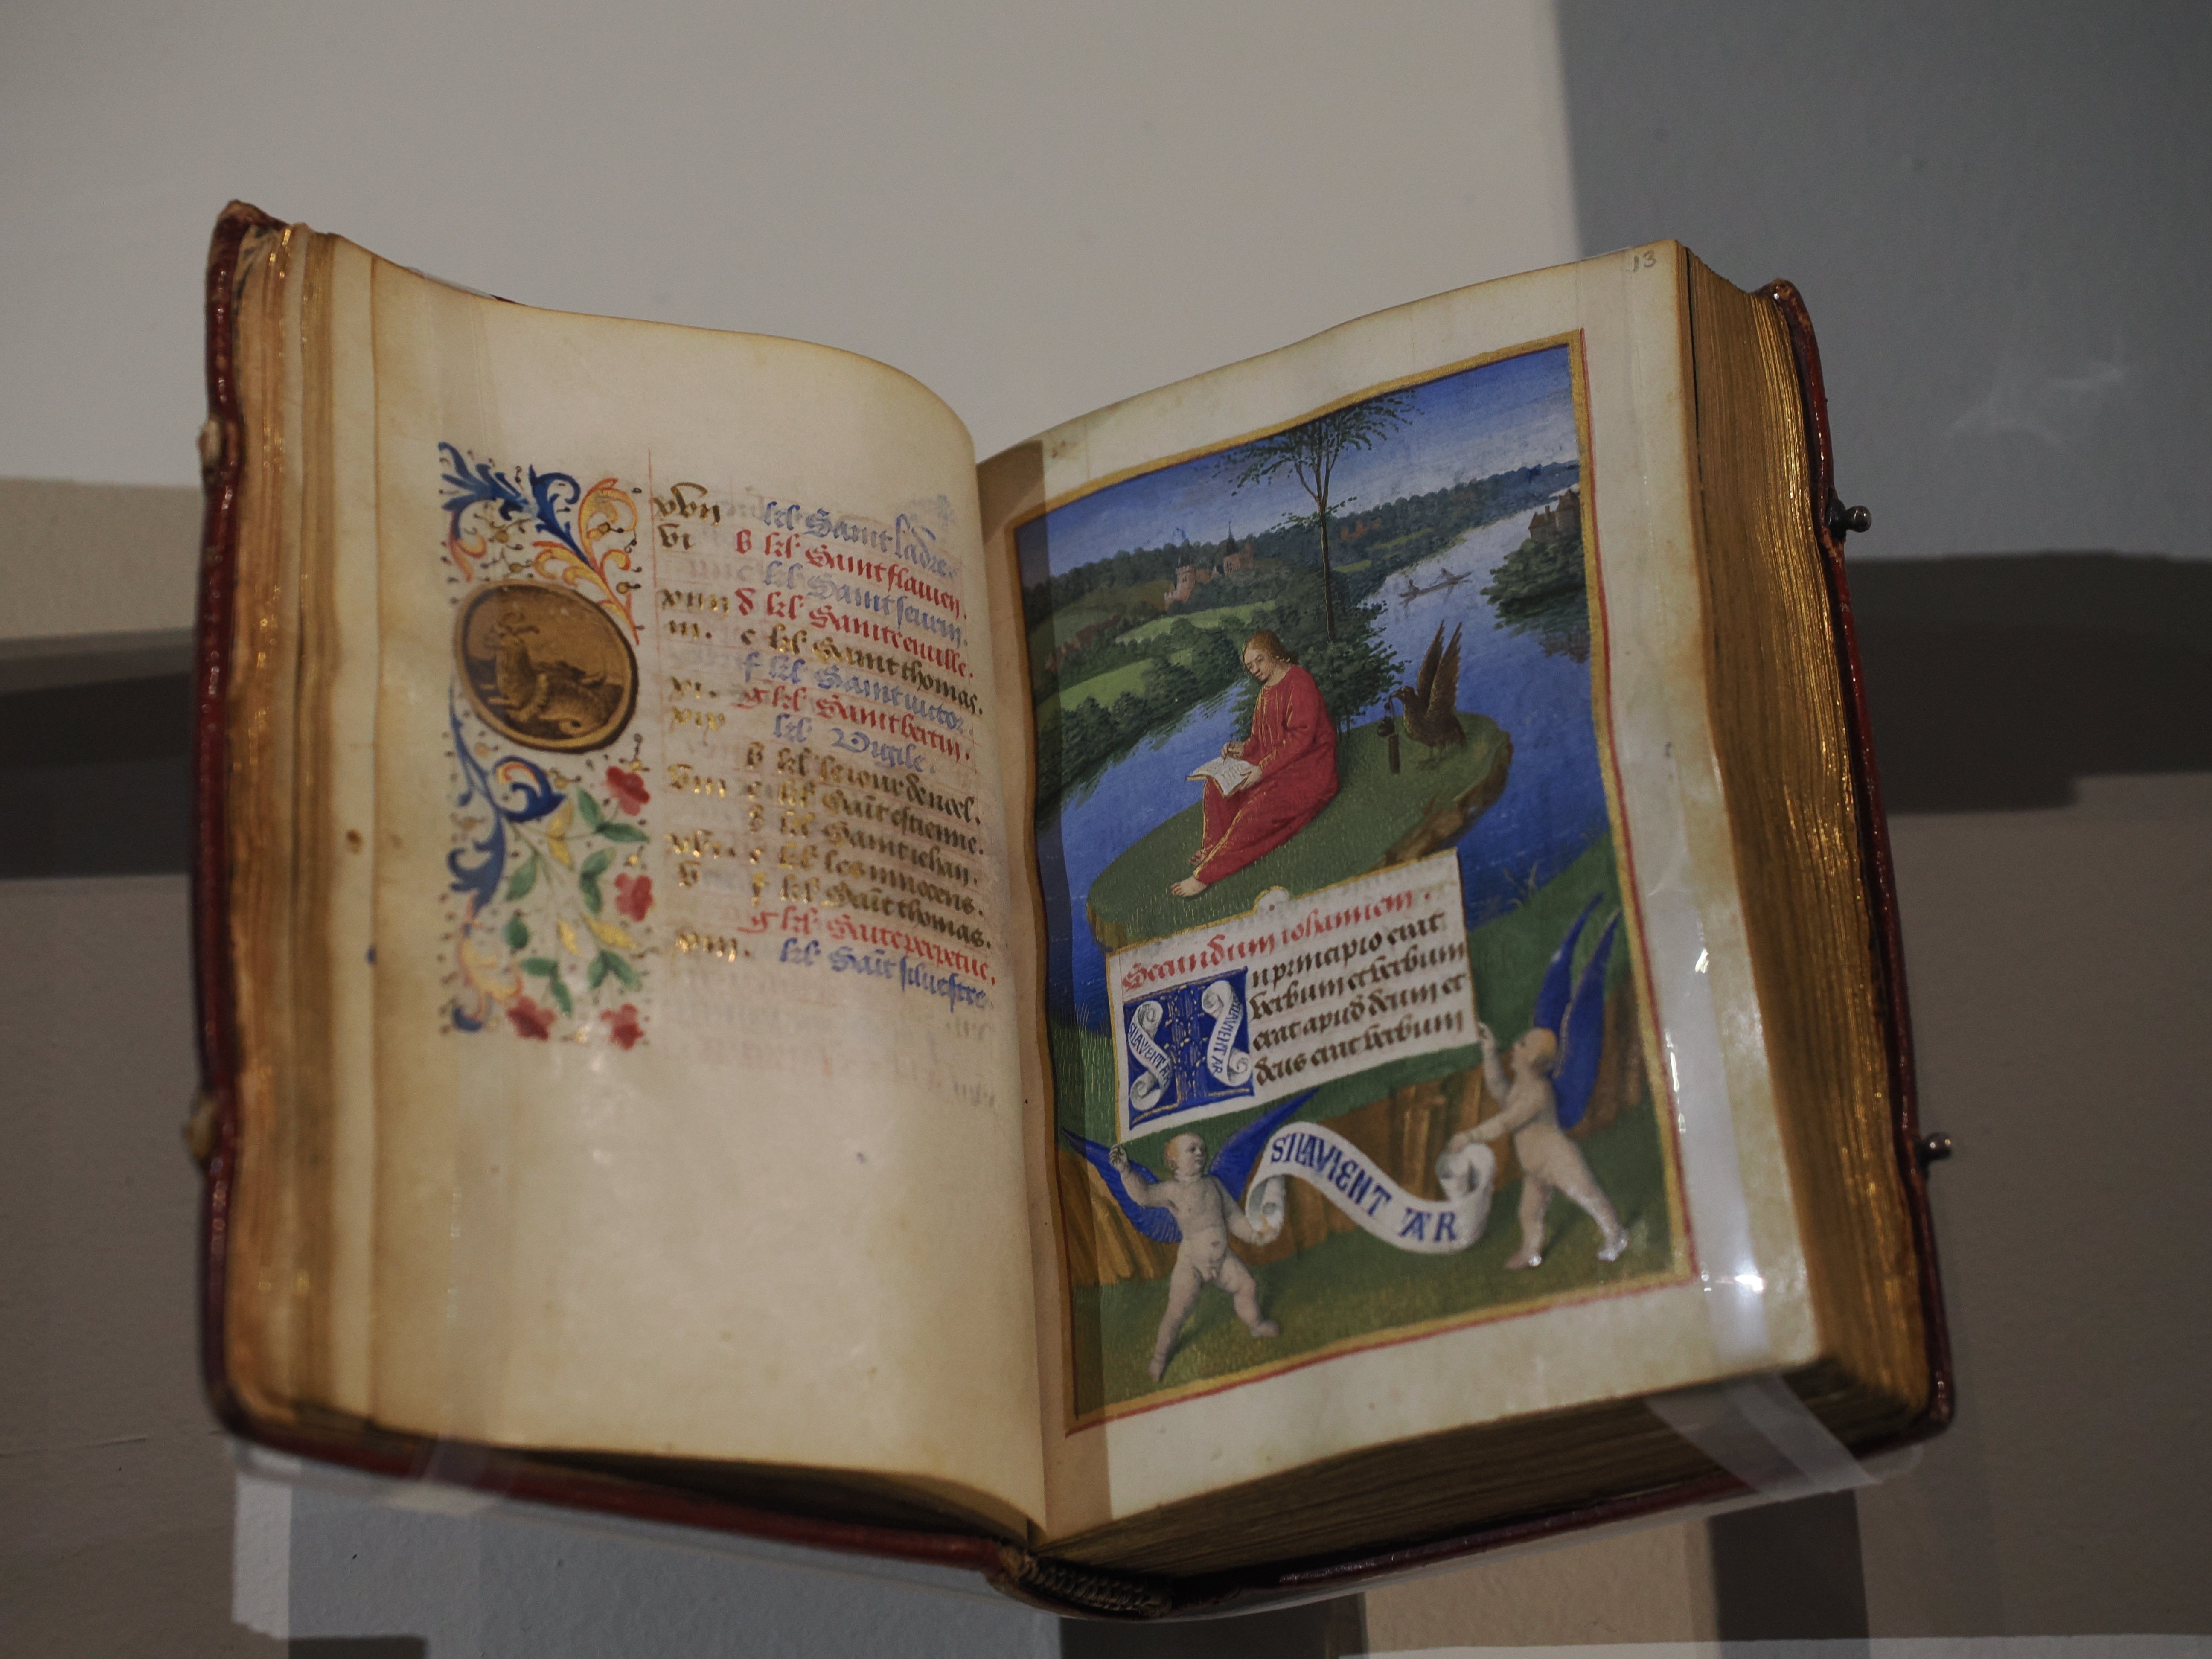 xvii kl' Saint ladre.
vi b kl' Saint flauien.
c kl' Saint seurin.
xiiii d kl' Sainte
iii. e kl' Saint thomas.
f kl' Saint victor.
xi. g kl' Saint bertin.
xix kl' Vigile.
b kl' le iour de noel.
viii c kl' Saīt estienne.
kl' Saint iehan.
xvi. e kl' les innocens.
v f kl' Saīt thomas.
g kl' Saīte perpetue.
xiii. kl' Saīt siluestre.
13
Secundum iohannem.
In principio erat
verbum et verbum
erat apud deum et
deus erat verbum
SILAVIENT AR
SILAVIENT AR
SILAVIENT AR